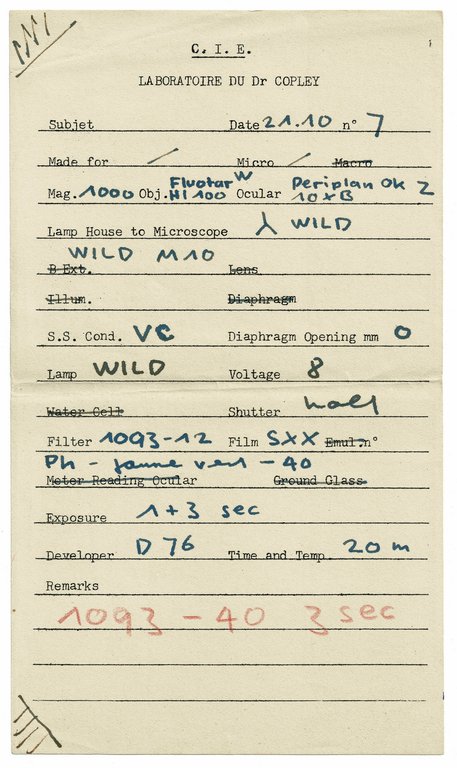 C. I. E.
LABORATOIRE DU Dr COPLEY
Subjet Date 21.10 n° 7
Made for / Micro / Macro
Mag. 1000 Obj. Fluotar W HI 100 Ocular Periplan Ok Z 10xB
Lamp House to Microscope WILD
WILD M10
B Ext. Lens
Illum. Diaphragm
S.S. Cond. VC Diaphragm Opening mm 0
Lamp WILD Voltage 8
Water Cell Shutter
Filter 1093-12 Film SXX Emul.n°
Ph - jaune vert - 40
Meter Reading Ocular Ground Glass
Exposure 1+3 sec
Developer D 76 Time and Temp. 20 m
Remarks
1093 - 40 3 sec